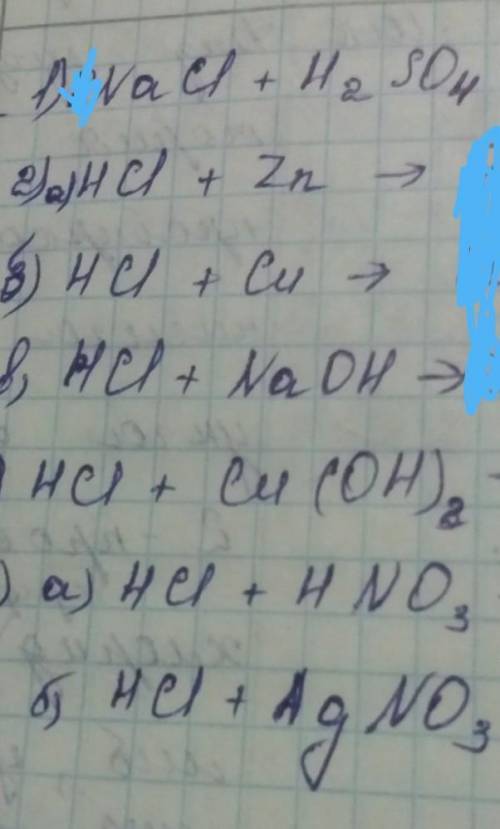 1) NaCl + H₂SO₄
2) а) HCl + Zn →
б) HCl + Cu →
в) HCl + NaOH →
) HCl + Cu(OH)₂
) а) HCl + HNO₃
б) HCl + AgNO₃